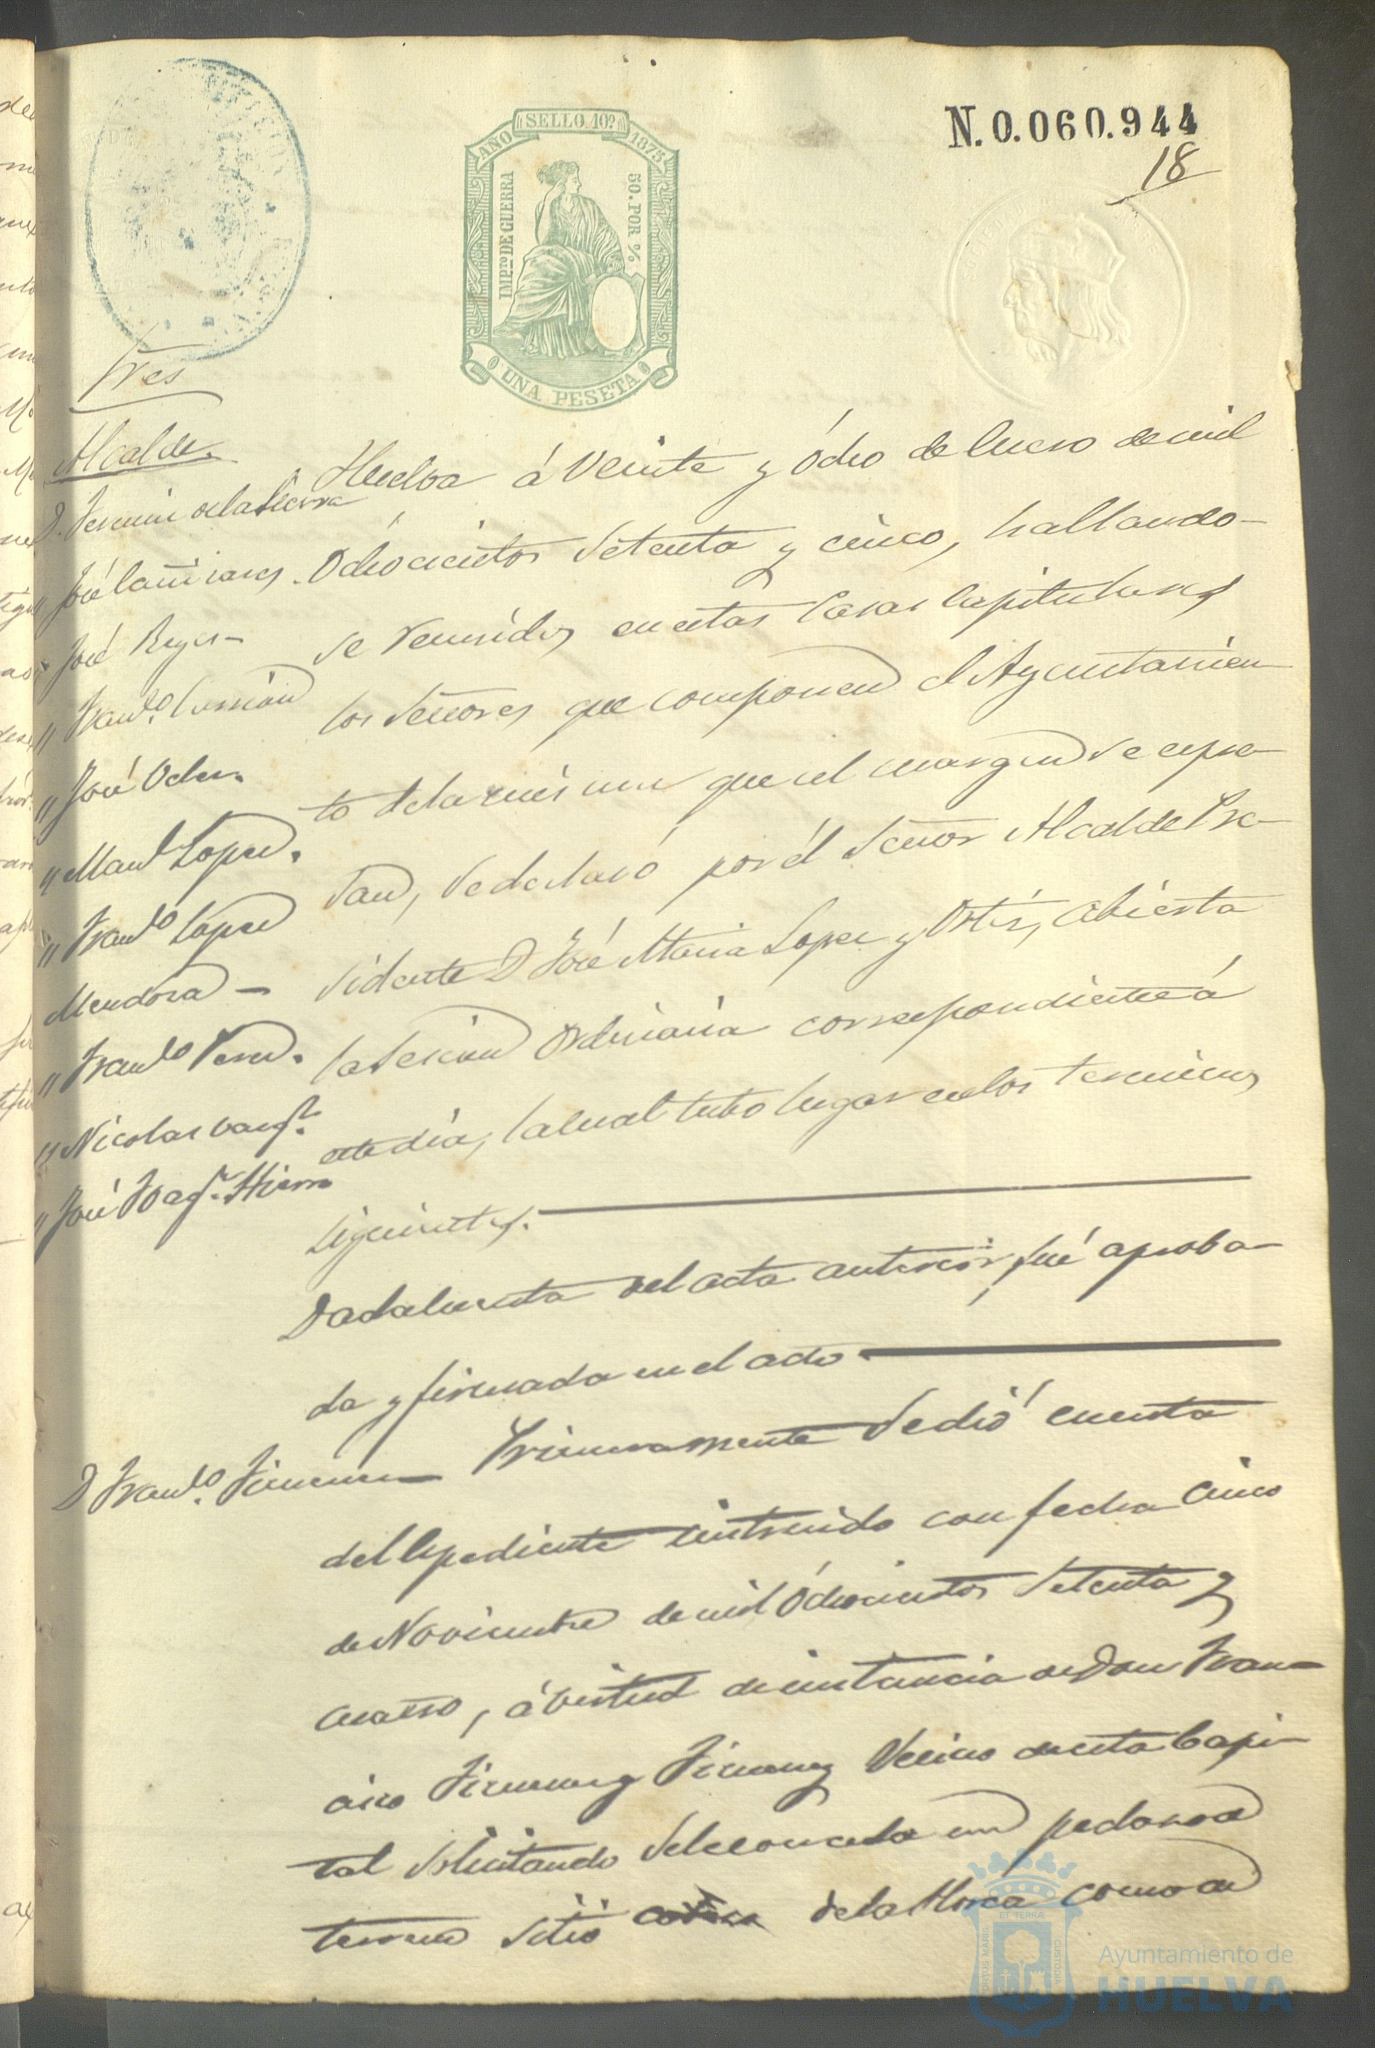 N. 0.060.944
18
SELLO 10º
AÑO 1875
IMP.to DE GUERRA
50. POR %
UNA PESETA
Tres
Alcalde.
D. Fermin de la Sierra
" José Cañizares
" José Reyes
" Fran.co
" José
" Man.l Lopez.
" Fran.co Lopez
Mendoza
" Fran.co Perez.
" Nicolas Vazq.z
" José Joaq.n Hierro
Huelva á Veinte y Ocho de Enero de mil
Ochocientos Setenta y cinco, hallando-
se reunidos en estas Casas Capitulares
los Señores que componen el Ayuntamien-
to de la misma que al margen se expre-
san, se declaró por él Señor Alcalde Pre-
sidente D José Maria Lopez y Ortiz, abierta
la Sesion Ordinaria correspondiente á
este dia, la cual tubo lugar en los terminos
siguientes.
Dada cuenta del acta anterior, fué aproba-
da y firmada en el acto.
D Fran.co Jimenez
Primeramente se dió cuenta
del Espediente instruido con fecha Cinco
de Noviembre de mil Ochocientos Setenta y
cuatro, á virtud de instancia de Don Fran-
cisco Jimenez y Jimenez Vecino de esta Capi-
tal solicitando se le conceda un pedazo de
terreno sitio de la Horca como de
PORTUS MARIS
ET TERRA
CUSTODIA
Ayuntamiento de
HUELVA